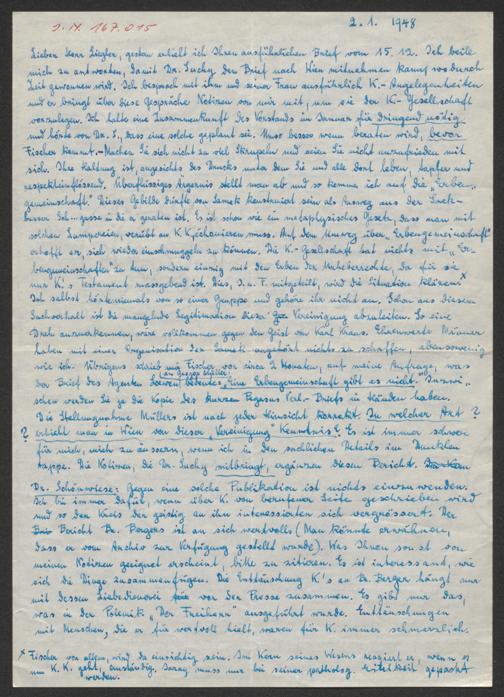 J.N. 167.015
2.1. 1948
Lieber Herr Liegler, gestern erhielt ich Ihren ausführlichen Brief vom 15.12. Ich beeile
mich zu antworten, damit Dr. Suchy den Brief nach Wien mitnehmen kann, wodurch
Zeit gewonnen wird. Ich besprach mit ihm und seiner Frau ausführlich K.-Angelegenheiten
und er bringt über diese Gespräche Notizen von mir mit, um sie der K.-Gesellschaft
vorzulegen. Ich halte eine Zusammenkunft des Vorstands im Januar für dringend nötig
und hörte von Dr. S., dass eine solche geplant sei. Muss besser wenn beraten wird, bevor
Fischer kommt. – Machen Sie sich nicht zu viel Skrupeln und seien Sie nicht unzufrieden mit
sich. Ihre Haltung ist, angesichts des Drucks unter dem Sie und alle dort leben, tapfer und
respekteinflössend. Überflüssiges Ärgernis stellt man ab und so komme ich auf die "Erben-
gemeinschaft". Dieses Gebilde dürfte von Samek konstruiert sein als Ausweg aus der
in die er geraten ist. Es ist schon wie ein metaphysisches Gesetz, dass man mit
solchen Lumpereien, verübt an K.K. sich muss. Auf dem Umweg über "Erbengemeinschaft"
erhofft er, sich wieder einschmuggeln zu können. Die K.-Gesellschaft hat nichts mit "Er-
bengemeinschaften" zu tun, sondern einzig mit den Erben der Urheberrechte, da für sie
nur K.'s Testament massgebend ist. Dies, S. u. F. mitgeteilt, wird die Situation klären! x
Ich selbst hörte niemals von so einer Gruppe und gehöre ihr nicht an. Schon aus diesem
Sachverhalt ist die mangelnde Legitimation dieser Vereinigung abzuleiten. So eine
Dreh anzuerkennen, wäre vollkommen gegen den Geist von Karl Kraus. Ehrenwerte Männer
haben mit einer Organisation der Samek angehört nichts zu schaffen, ebensowenig
wie ich. Übrigens schrieb mir Fischer vor circa 2 Monaten, auf meine Anfrage, was
der Brief des Agenten bedeutet: Eine Erbengemeinschaft gibt es nicht. Inzwi-
schen werden Sie ja die Kopie des kurzen Pegasus Verl.-Briefs in Händen haben.
Die Stellungnahme Müllers ist nach jeder Hinsicht korrekt. In welcher Art ?
? erhielt man in Wien von dieser "Vereinigung" Kenntnis? Es ist immer schwer
für mich, mich zu äussern, wenn ich in den sachlichen Details im Dunkeln
tappe. Die Notizen, die Dr. Suchy mitbringt, ergänzen diesen Bericht.
Dr. Schönwiese: Gegen eine solche Publikation ist nichts einzuwenden.
Ich bin immer dafür, wenn über K. von berufener Seite geschrieben wird
und so den Kreis der geistig an ihm interessierten sich vergrössert. Der
Bericht Dr. Bergers ist an sich wertvoll (Man könnte erwähnen,
dass er vom Archiv zur Verfügung gestellt wurde). Was Ihnen sonst von
meinen Notizen geeignet erscheint, bitte zu zitieren. Es ist interessant, wie
sich die Dinge zusammenfügen. Die Enttäuschung K's an Dr. Berger hängt nur
mit dessen Liebedienerei für vor der Presse zusammen. Es gibt nur das,
was in der Polemik "Der Freiherr" ausgeführt wurde. Enttäuschungen
mit Menschen, die er für wertvoll hielt, waren für K. immer schmerzlich.
x Fischer vor allem, wird da einsichtig sein. Im Kern seines Wesens reagiert er, wenn es
um K.K. geht, anständig. Samek muss nur bei seiner patholog. Eitelkeit gepackt
werden.